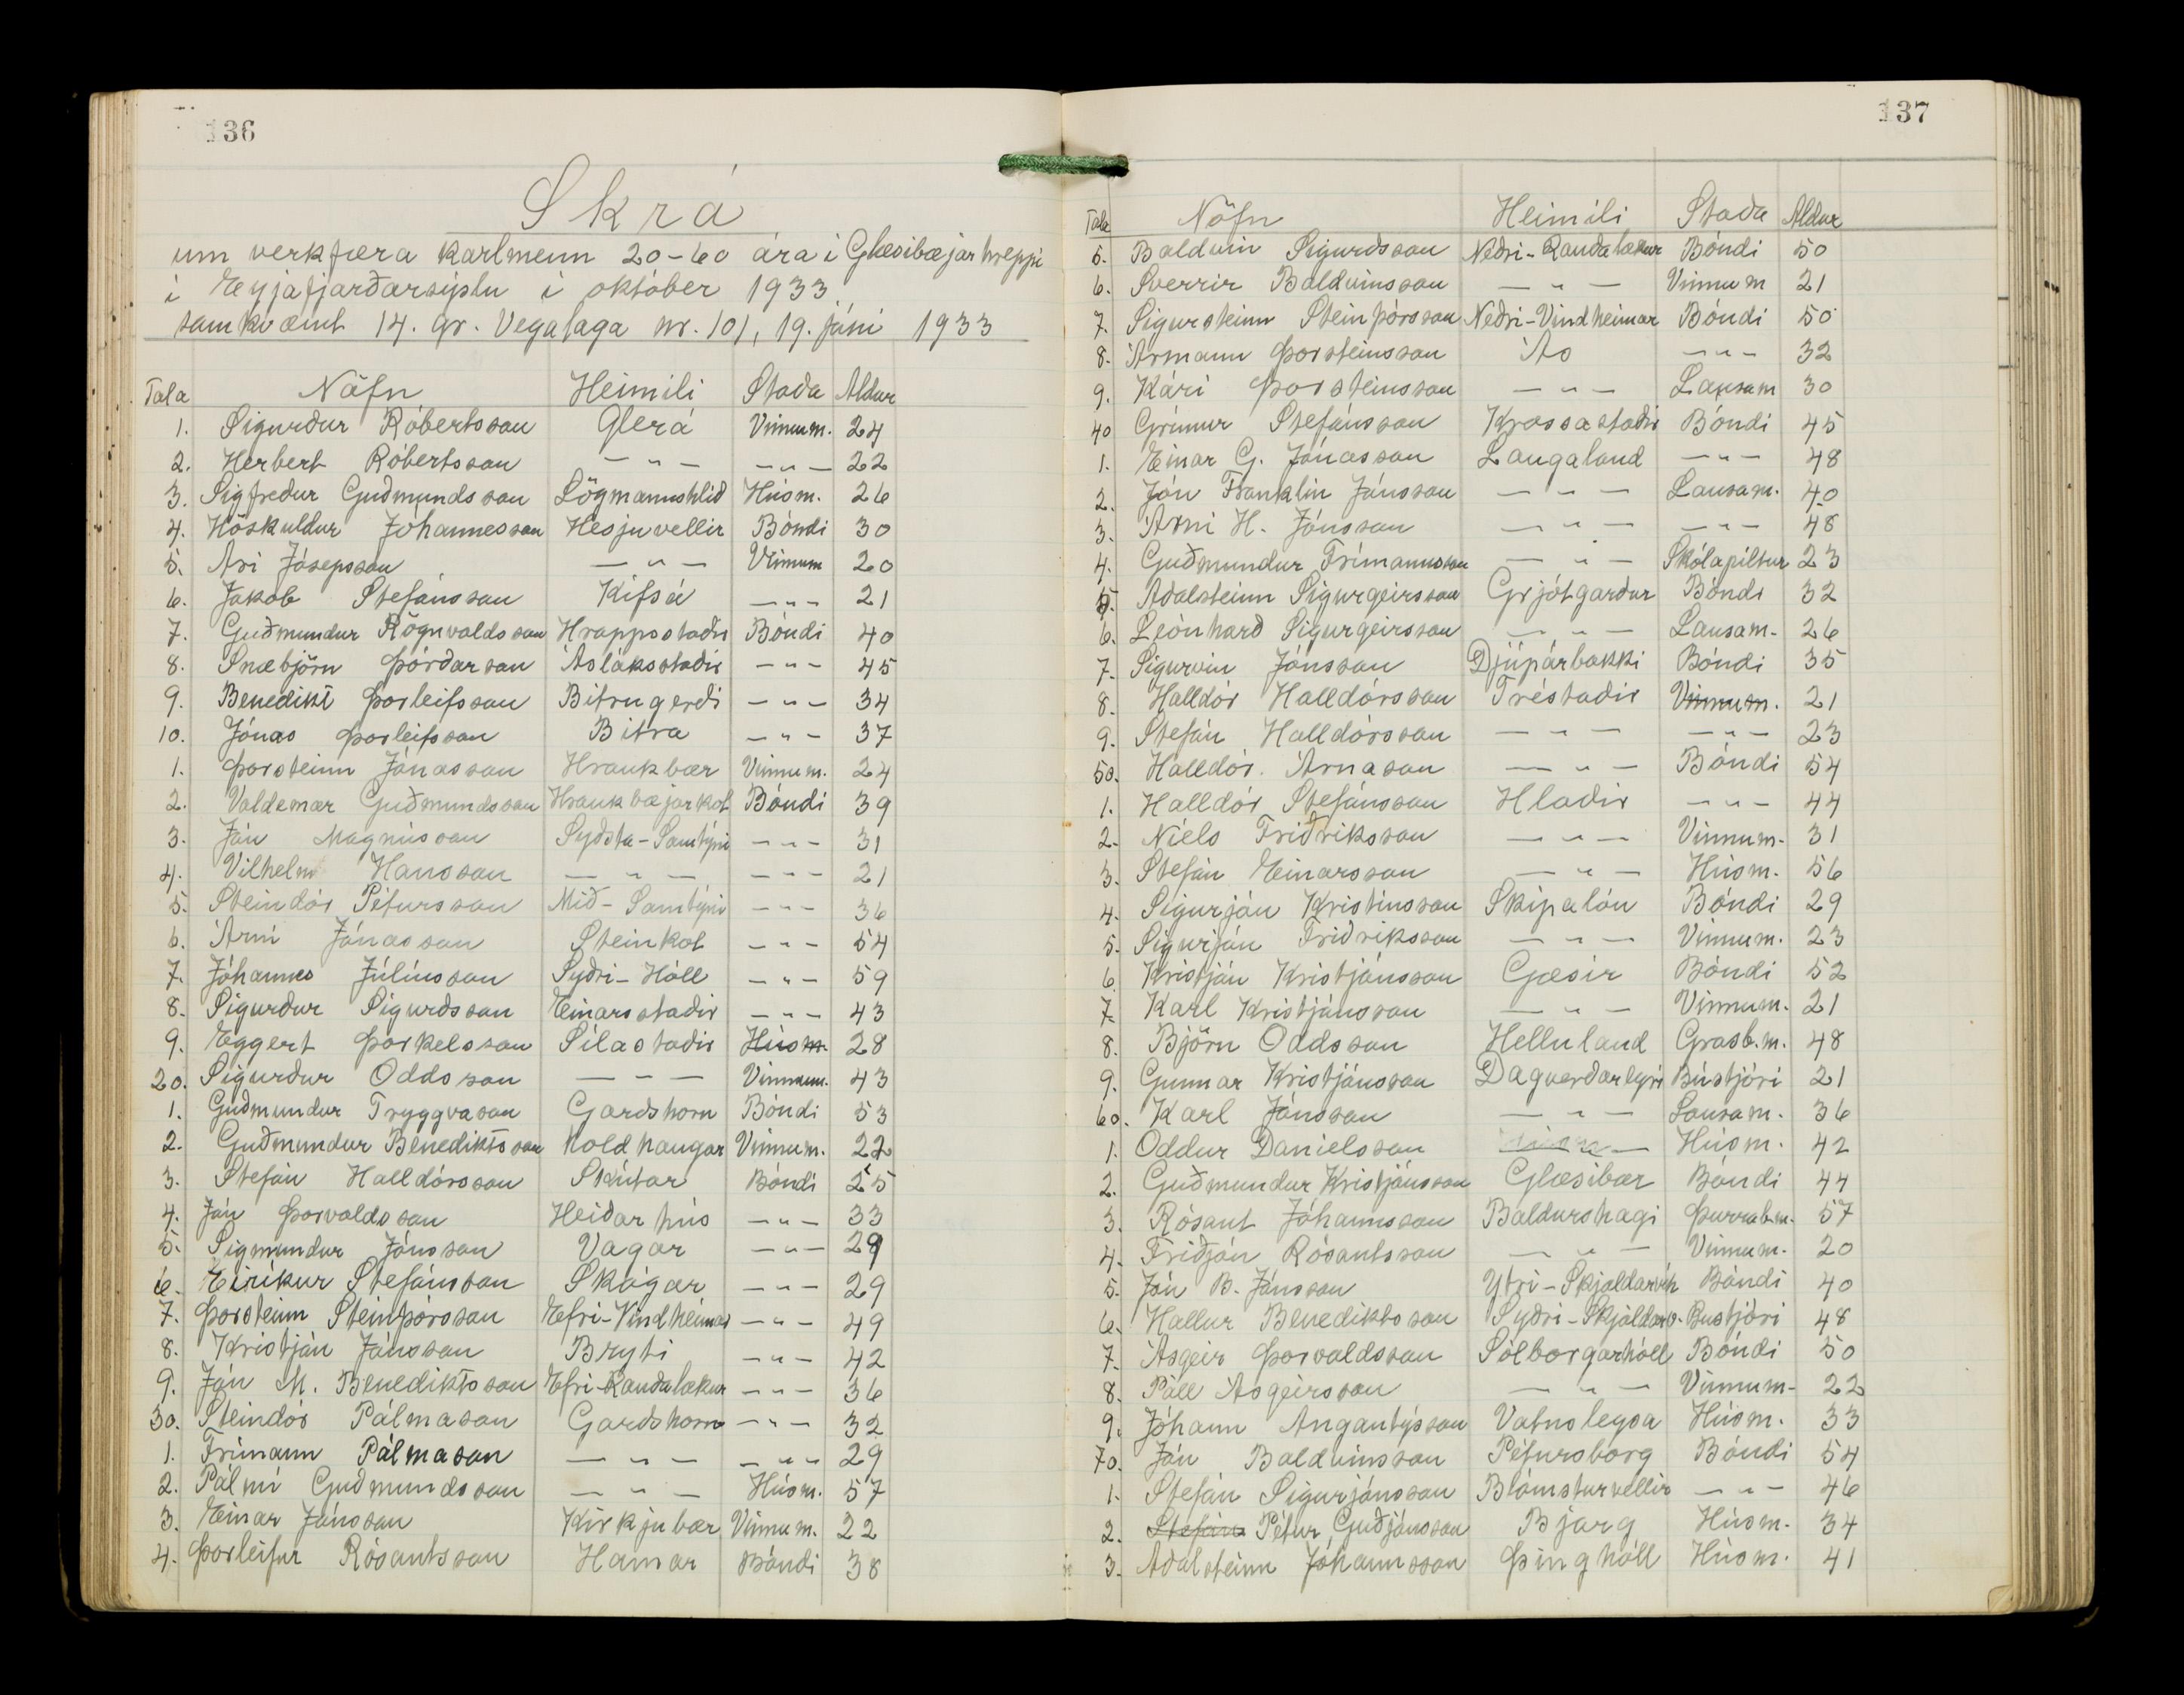 136
Skrá
um verkfæra karlmenn 20-60 ára í Glæsibæjarhreppi
í Eyjafjarðarsýslu í október 1933
samkvæmt 14. gr. Vegalaga nr. 101, 19. júní 1933
Tala Nöfn Heimili Staða Aldur
1. Sigurður Róbertsson Glerá Vinnum. 24
2. Herbert Róbertsson — " — — " — 22
3. Sigfreður Guðmundsson Lögmannshlíð Húsm. 26
4. Höskuldur Jóhannesson Hesjuvellir Bóndi 30
5. Ari Jósepsson — " — Vinnum 20
6. Jakob Stefánsson Kífsá — " — 21
7. Guðmundur Rögnvaldsson Hrappsstaðir Bóndi 40
8. Snæbjörn Þórðarson Ásláksstaðir — " — 45
9. Benedikt Þorleifsson Bitrugerði — " — 34
10. Jónas Þorleifsson Bitra — " — 37
1. Þorsteinn Jónasson Hraukbær Vinnum. 24
2. Valdemar Guðmundsson Hraukbæjarkot Bóndi 39
3. Jón Magnússon Syðsta-Samtýni — " — 31
4. Vilhelm Hansson — " — — " — 21
5. Steindór Pétursson Mið-Samtýni — " — 36
6. Árni Jónasson Steinkot — " — 54
7. Jóhannes Júlíusson Syðri-Hóll — " — 59
8. Sigurður Sigurðsson Einarsstaðir — " — 43
9. Eggert Þorkelsson Sílastaðir Húsm. 28
20. Sigurður Oddsson — " — Vinnum. 43
1. Guðmundur Tryggvason Garðshorn Bóndi 53
2. Guðmundur Benediktsson Koldhaugar Vinnum. 22
3. Stefán Halldórsson Skútar Bóndi 25
4. Jón Þorvaldsson Heiðarhús — " — 33
5. Sigmundur Jónsson Vagar — " — 29
6. Eiríkur Stefánsson Skógar — " — 29
7. Þorsteinn Steinþórsson Efri-Vindheimar — " — 49
8. Kristján Jónsson Bryti — " — 42
9. Jón M. Benediktsson Efri-Rauðalækur — " — 36
30. Steindór Pálmason Garðshorn — " — 32
1. Frímann Pálmason — " — — " — 29
2. Pálmi Guðmundsson — " — Húsm. 57
3. Einar Jónsson Kirkjubær Vinnum. 22
4. Þorleifur Rósantsson Hamar Bóndi 38
137
Tala Nöfn Heimili Staða Aldur
5. Balduin Sigurðsson Neðri-Rauðalækur Bóndi 50
6. Sverrir Balduinsson — " — Vinnum 21
7. Sigursteinn Steinþórsson Neðri-Vindheimar Bóndi 50
8. Ármann Þorsteinsson Ás — " — 32
9. Kári Þorsteinsson — " — Lausam 30
40 Grímur Stefánsson Krossastaðir Bóndi 45
1. Einar G. Jónasson Laugaland — " — 48
2. Jón Franklín Jónsson — " — Lausam. 40
3. Árni H. Jónsson — " — — " — 48
4. Guðmundur Frímannsson — " — Skólapiltur 23
5. Aðalsteinn Sigurgeirsson Grjótgarður Bóndi 32
6. Leónharð Sigurgeirsson — " — Lausam. 26
7. Sigurvin Jónsson Djúpárbakki Bóndi 35
8. Halldór Halldórsson Tréstaðir Vinnum. 21
9. Stefán Halldórsson — " — — " — 23
50. Halldór Árnason — " — Bóndi 54
1. Halldór Stefánsson Hlaðir — " — 44
2. Níels Friðriksson — " — Vinnum. 31
3. Stefán Einarsson — " — Húsm. 56
4. Sigurjón Kristinsson Skipalón Bóndi 29
5. Sigurjón Friðriksson — " — Vinnum. 23
6. Kristján Kristjánsson Gæsir Bóndi 52
7. Karl Kristjánsson — " — Vinnum. 21
8. Björn Oddsson Helluland Grasb.m. 48
9. Gunnar Kristjánsson Dagverðareyri Bústjóri 21
60. Karl Jónsson — " — Lausam. 36
1. Oddur Danielsson — " — Húsm. 42
2. Guðmundur Kristjánsson Glæsibær Bóndi 44
3. Rósant Jóhannsson Baldurshagi Þurrab.m. 57
4. Friðjón Rósantsson — " — Vinnum. 20
5. Jón B. Jónsson Ytri-Skjaldarvík Bóndi 40
6. Hallur Benediktsson Syðri-Skjaldarv. Bustjóri 48
7. Ásgeir Þorvaldsson Sólborgarhóll Bóndi 50
8. Páll Ásgeirsson — " — Vinnum. 22
9. Jóhann Angantýsson Vatnsleysa Húsm. 33
70. Jón Balduinsson Pétursborg Bóndi 54
1. Stefán Sigurjónsson Blómsturvellir — " — 46
2. Stefán Pétur Guðjónsson Bjarg Húsm. 34
3. Aðalsteinn Jóhannsson Þinghóll Húsm. 41